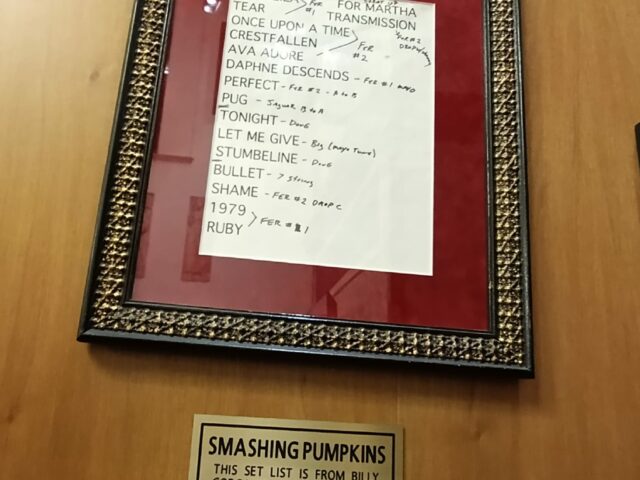 TEAR
#1
FOR MARTHA
TRANSMISSION
ONCE UPON A TIME
CRESTFALLEN
AVA ADORE
FER
#2
DAPHNE DESCENDS - FER #1
PERFECT - FER #2 - A to B
PUG - JAGUAR B to A
TONIGHT - DOUG
LET ME GIVE - Big (
STUMBELINE - DOUG
BULLET - 7 STRING
SHAME - FER #2 DROP C
1979
RUBY
FER #1
SMASHING PUMPKINS
THIS SET LIST IS FROM BILLY